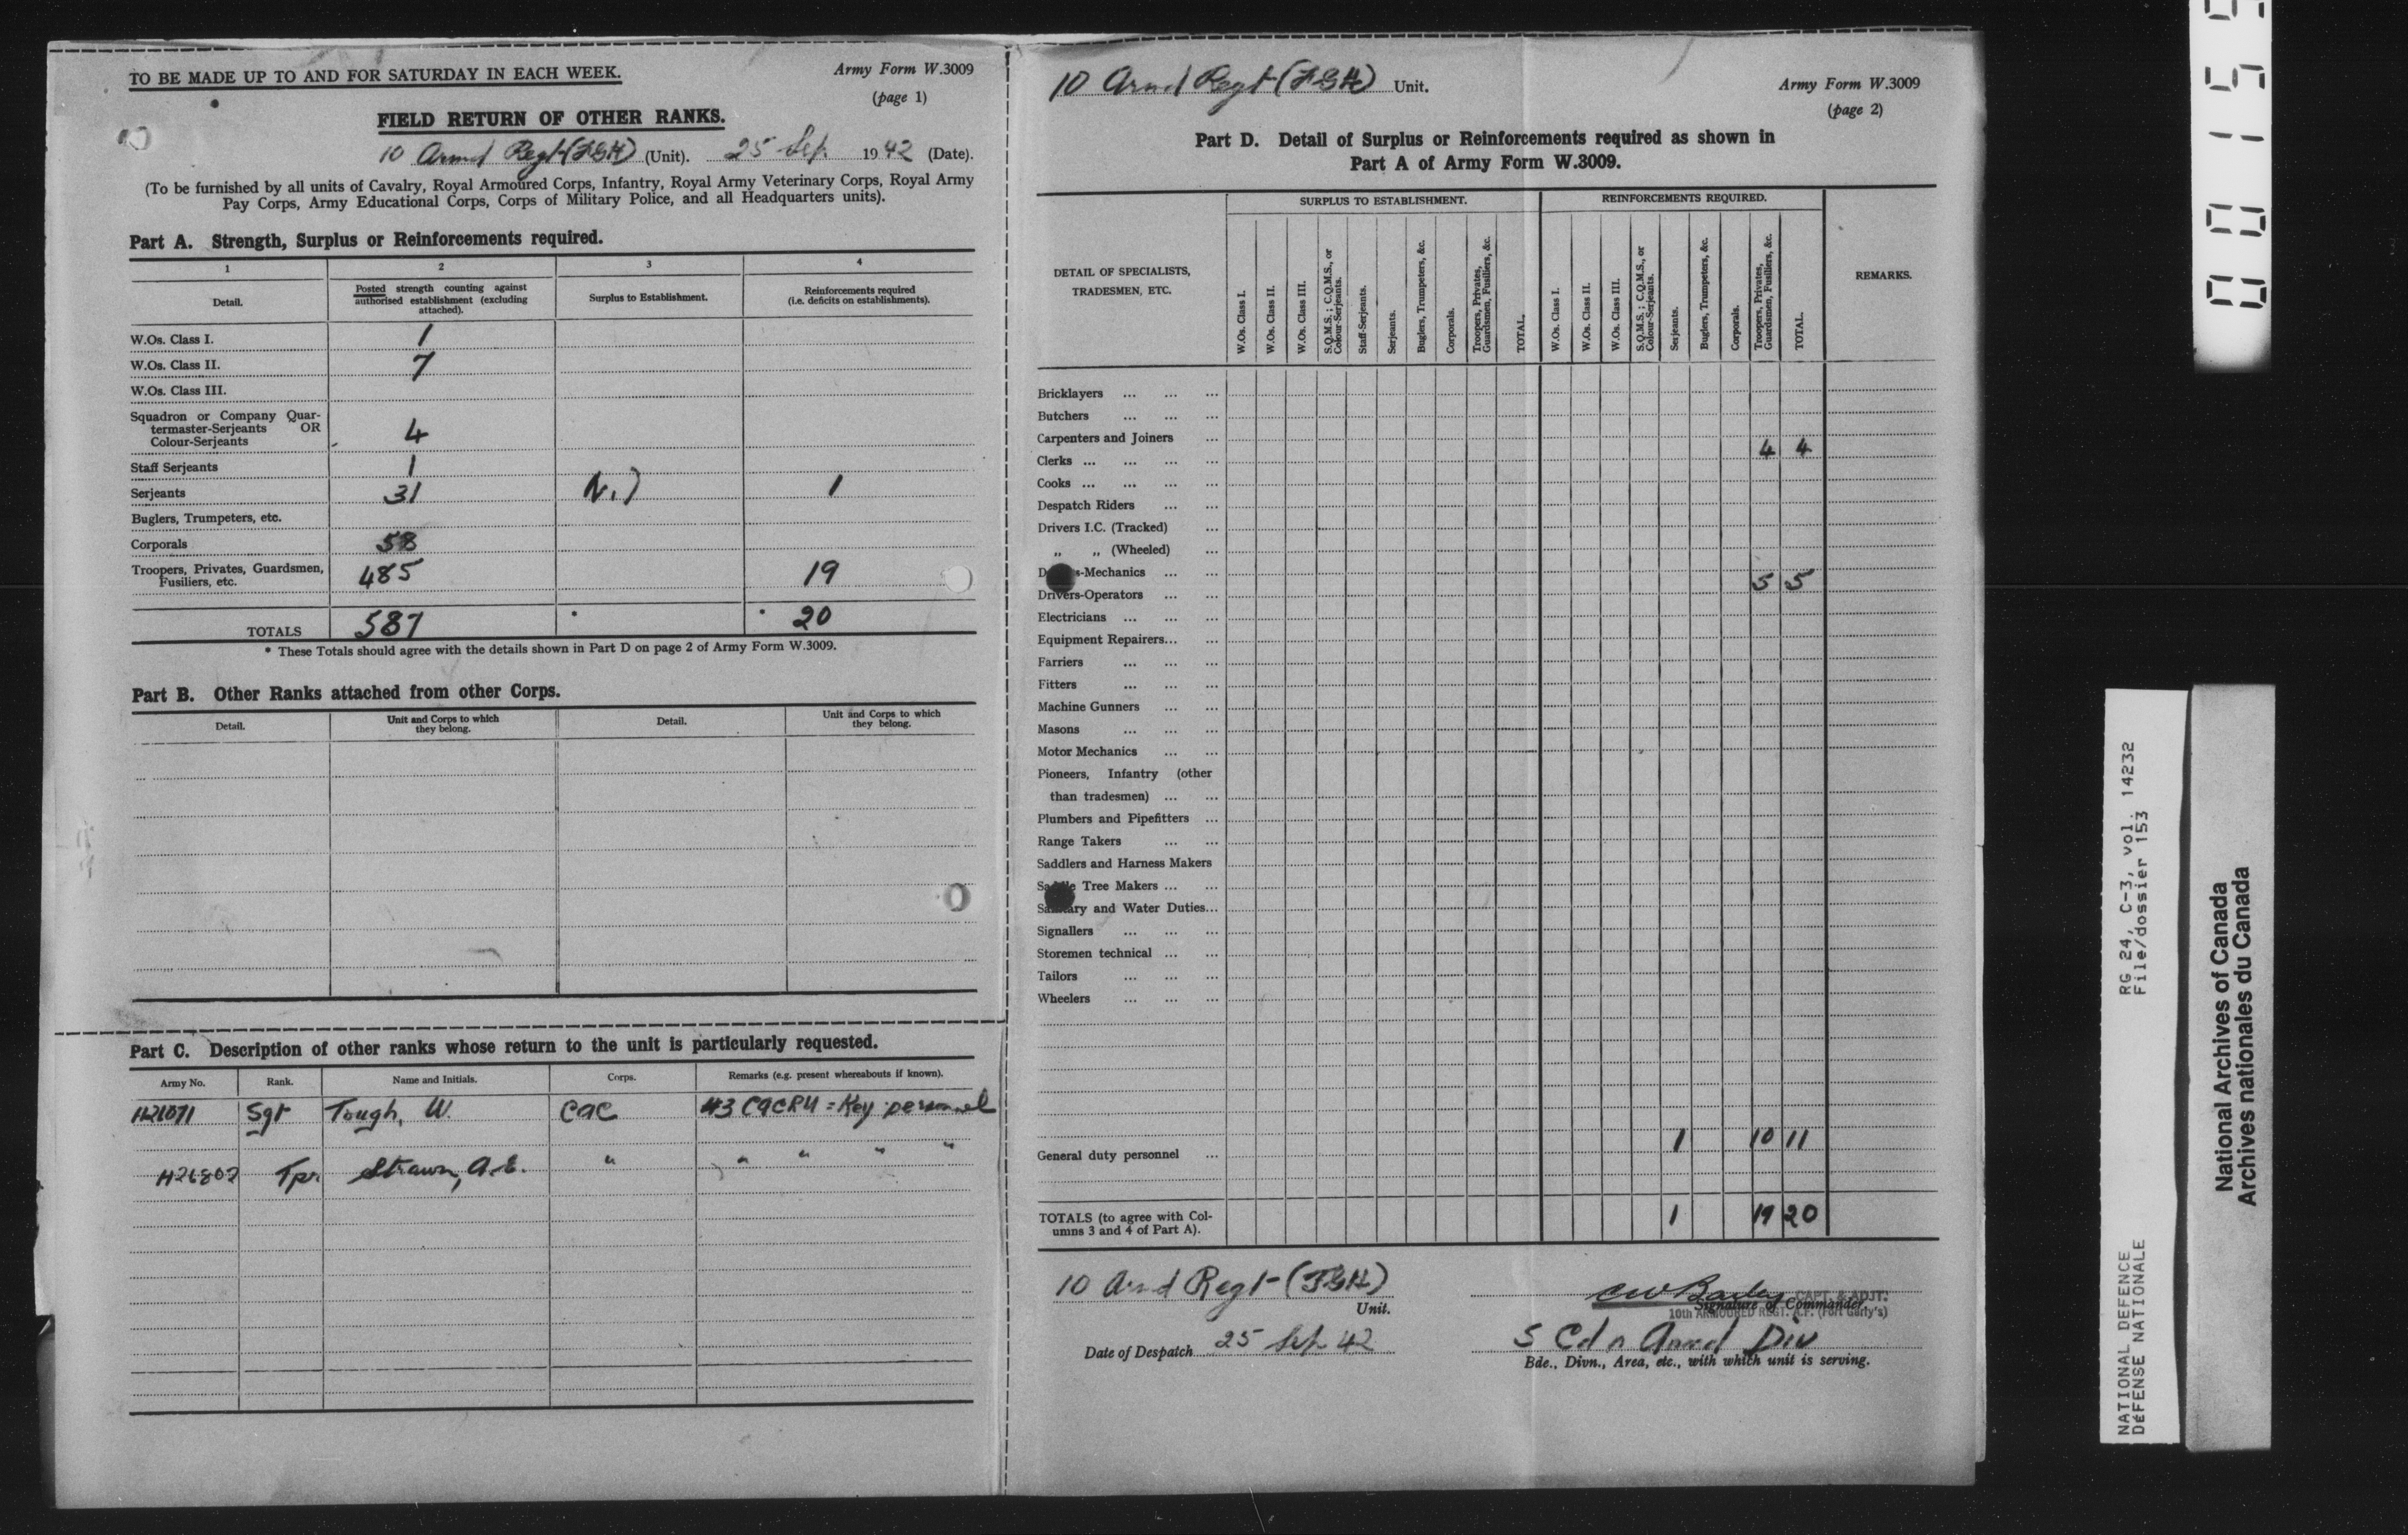 TO BE MADE UP TO AND FOR SATURDAY IN EACH WEEK.
Army Form W.3009
(page 1)
FIELD RETURN OF OTHER RANKS.
10 Armd Regt (FGH) (Unit). 25 Sep. 1942 (Date).
(To be furnished by all units of Cavalry, Royal Armoured Corps, Infantry, Royal Army Veterinary Corps, Royal Army
Pay Corps, Army Educational Corps, Corps of Military Police, and all Headquarters units).
Part A. Strength, Surplus or Reinforcements required.
1 2 3 4
Detail.
Posted strength counting against
authorised establishment (excluding
attached).
Surplus to Establishment.
Reinforcements required
(i.e. deficits on establishments).
W.Os. Class I. 1
W.Os. Class II. 7
W.Os. Class III.
Squadron or Company Quar-
termaster-Serjeants OR
Colour-Serjeants 4
Staff Serjeants 1
Serjeants 31 Nil 1
Buglers, Trumpeters, etc.
Corporals 58
Troopers, Privates, Guardsmen,
Fusiliers, etc. 485 19
TOTALS 587 * * 20
* These Totals should agree with the details shown in Part D on page 2 of Army Form W.3009.
Part B. Other Ranks attached from other Corps.
Detail.
Unit and Corps to which
they belong.
Detail.
Unit and Corps to which
they belong.
Part C. Description of other ranks whose return to the unit is particularly requested.
Army No. Rank. Name and Initials. Corps. Remarks (e.g. present whereabouts if known).
H21071 Sgt Tough, W. CAC #3 CACRU = Key personnel
H26802 Tpr Strawn, A.E. " " " " "
10 Armd Regt (FGH) Unit.
Army Form W.3009
(page 2)
Part D. Detail of Surplus or Reinforcements required as shown in
Part A of Army Form W.3009.
DETAIL OF SPECIALISTS,
TRADESMEN, ETC.
SURPLUS TO ESTABLISHMENT.
W.Os. Class I.
W.Os. Class II.
W.Os. Class III.
S.Q.M.S.; C.Q.M.S., or
Colour-Serjeants.
Staff-Serjeants.
Serjeants.
Buglers, Trumpeters, &c.
Corporals.
Troopers, Privates,
Guardsmen, Fusiliers, &c.
TOTAL.
REINFORCEMENTS REQUIRED.
W.Os. Class I.
W.Os. Class II.
W.Os. Class III.
S.Q.M.S.; C.Q.M.S., or
Colour-Serjeants.
Serjeants.
Buglers, Trumpeters, &c.
Corporals.
Troopers, Privates,
Guardsmen, Fusiliers, &c.
TOTAL.
REMARKS.
Bricklayers ... ... ...
Butchers ... ... ...
Carpenters and Joiners ...
Clerks ... ... ... ... 4 4
Cooks ... ... ... ...
Despatch Riders ... ...
Drivers I.C. (Tracked) ...
„ „ (Wheeled) ...
Drivers-Mechanics ... ...
Drivers-Operators ... ... 5 5
Electricians ... ... ...
Equipment Repairers... ...
Farriers ... ... ...
Fitters ... ... ...
Machine Gunners ... ...
Masons ... ... ...
Motor Mechanics ... ...
Pioneers, Infantry (other
than tradesmen) ... ...
Plumbers and Pipefitters ...
Range Takers ... ...
Saddlers and Harness Makers
Saddle Tree Makers ... ...
Sanitary and Water Duties...
Signallers ... ... ...
Storemen technical ... ...
Tailors ... ... ...
Wheelers ... ... ...
General duty personnel ... 1 10 11
TOTALS (to agree with Col-
umns 3 and 4 of Part A). 1 19 20
10 Armd Regt (FGH)
Unit.
Date of Despatch 25 Sep 42
CAPT. & ADJT.
Signature of Commander
10th ARMOURED REGT. A.F. (Fort Garry's)
5 Cdn Armd Div
Bde., Divn., Area, etc., with which unit is serving.
00159
RG 24, C-3, vol. 14232
File/dossier 153
NATIONAL DEFENCE
DÉFENSE NATIONALE
National Archives of Canada
Archives nationales du Canada